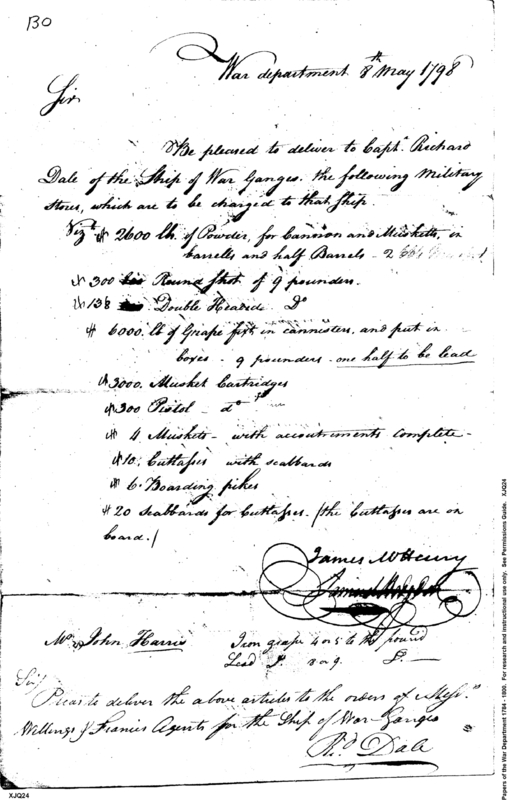 BO
War department 8th May 1798
Sir
Be pleased to deliver to Captn Richard
Dale of the Ship of War Ganges. the following Military
Stores, which are to be charged to that Ship.
Vizt 2600 lb. of Powder, for Cannon and Muskets, in
barrells and half Barrels - 2
300 Round Shot of 9 pounders.
138 Double Headed Do
6000. lb of Grape fixt in cannisters, and put in
boxes - 9 pounders - one half to be lead
3000. Musket Cartridges
300 Pistol - do
4 Muskets - with accoutrements complete -
10. Cutlasses with scabbards
6. Boarding pikes
20 Scabbards for Cutlasses. /the Cutlasses are on
board./
James McHenry
Samuel Hodgdon
Mr John Harris
Iron grape 4 or 5 to the pound
Lead Do. 8 or 9. Do. —
Sir
Pleas to deliver the above articles to the orders of Messrs
Willings & Francis Agents for the Ship of War Ganges
Rd Dale
XJQ24
Papers of the War Department 1784 - 1800. For research and instructional use only. See Permissions Guide. XJQ24